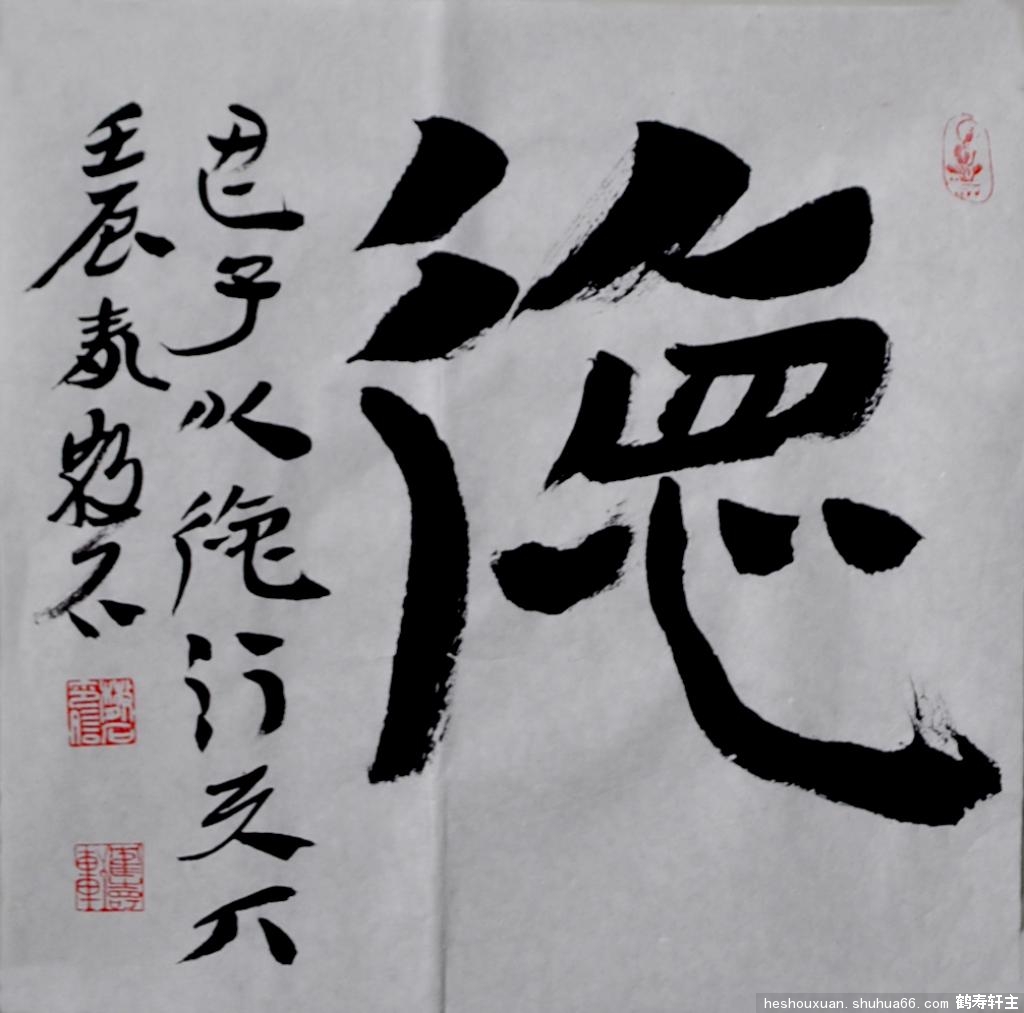 德
君子以德行天下
壬辰
heshouxuan.shuhua66.com 鹤寿轩主